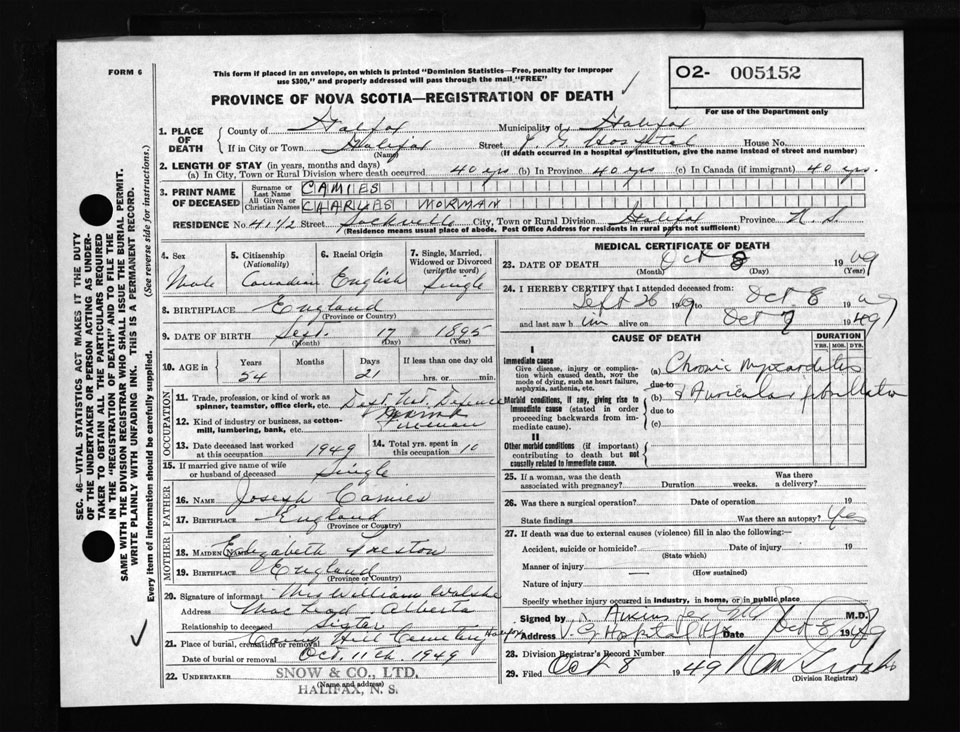 FORM 6
This form if placed in an envelope, on which is printed "Dominion Statistics—Free, penalty for improper
use $300," and properly addressed will pass through the mail "FREE"
O2- 005152
For use of the Department only
PROVINCE OF NOVA SCOTIA—REGISTRATION OF DEATH
1. PLACE OF DEATH
County of Halifax Municipality of Halifax
If in City or Town Halifax Street V. G. Hospital House No.
(Name) (If death occurred in a hospital or institution, give the name instead of street and number)
2. LENGTH OF STAY (in years, months and days)
(a) In City, Town or Rural Division where death occurred 40 yrs (b) In Province 40 yrs (c) In Canada (if immigrant) 40 yrs.
3. PRINT NAME OF DECEASED
Surname or Last Name CAMIES
All Given or Christian Names CHARLES NORMAN
RESIDENCE No. 41 1/2 Street Sackville City, Town or Rural Division Halifax Province N.S.
(Residence means usual place of abode. Post Office Address for residents in rural parts not sufficient)
4. Sex
Male
5. Citizenship
(Nationality)
Canadian
6. Racial Origin
English
7. Single, Married,
Widowed or Divorced
(write the word)
Single
8. BIRTHPLACE England
(Province or Country)
9. DATE OF BIRTH Sept. 17 1895
(Month) (Day) (Year)
10. AGE IN Years Months Days If less than one day old
54 21 hrs. or min.
OCCUPATION
11. Trade, profession, or kind of work as
spinner, teamster, office clerk, etc.
12. Kind of industry or business, as cotton-
mill, lumbering, bank, etc. Fireman
13. Date deceased last worked
at this occupation 1949
14. Total yrs. spent in
this occupation 10
15. If married give name of wife
or husband of deceased Single
FATHER
16. NAME Joseph Camies
17. BIRTHPLACE England
(Province or Country)
MOTHER
18. MAIDEN NAME Elizabeth Preston
19. BIRTHPLACE England
(Province or Country)
20. Signature of informant Mrs William Walshe
Address MacLeod Alberta
Relationship to deceased Sister
21. Place of burial, cremation or removal Camp Hill Cemetery Halifax
Date of burial or removal Oct. 11th. 1949
22. UNDERTAKER SNOW & CO., LTD.
(Name and address)
HALIFAX, N. S.
MEDICAL CERTIFICATE OF DEATH
23. DATE OF DEATH Oct 8 1949
(Month) (Day) (Year)
24. I HEREBY CERTIFY that I attended deceased from:
Sept 26 1949 to Oct 8 1949
and last saw him alive on Oct 7 1949
CAUSE OF DEATH
DURATION
YRS. MOS. DYS.
I
Immediate cause
Give disease, injury or complica-
tion which caused death, not the
mode of dying, such as heart failure,
asphyxia, asthenia, etc.
(a) Chronic Myocarditis
due to
Morbid conditions, if any, giving rise to
immediate cause (stated in order
proceeding backwards from im-
mediate cause).
(b) & Auricular fibrillation
due to
(c)
II
Other morbid conditions (if important)
contributing to death but not
causally related to immediate cause.
25. If a woman, was the death
associated with pregnancy? Duration weeks.
Was there
a delivery?
26. Was there a surgical operation? Date of operation 19
State findings Was there an autopsy? Yes
27. If death was due to external causes (violence) fill in also the following:—
Accident, suicide or homicide? Date of injury 19
(State which)
Manner of injury
(How sustained)
Nature of injury
Specify whether injury occurred in industry, in home, or in public place
Signed by M.D.
Address V. G. Hospital Hfx Date Oct 8 1949
28. Division Registrar's Record Number
29. Filed Oct 8 1949
(Division Registrar)
SEC. 46—VITAL STATISTICS ACT MAKES IT THE DUTY
OF THE UNDERTAKER OR PERSON ACTING AS UNDER-
TAKER TO OBTAIN ALL THE PARTICULARS REQUIRED
IN THE "REGISTRATION OF DEATH" AND TO FILE THE
SAME WITH THE DIVISION REGISTRAR WHO SHALL ISSUE THE BURIAL PERMIT.
WRITE PLAINLY WITH UNFADING INK. THIS IS A PERMANENT RECORD.
Every item of information should be carefully supplied. (See reverse side for instructions.)